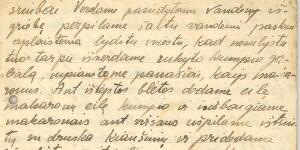 sriubon. Verdame pasūdytam vandeny iš-
griebę perpilame šaltu vandeniu paskui
aplaistome lydytu sviestu, kad nesuliptu
tuo tarpu išverdame rukyto kumpio ga-
balą, supiaustome panašiai, kaip maka-
ronus. Ant išteptos blėtos dedame eilę
makaronų eilę kumpio ir užbaigiame
makaronais ant viršaus užpilame ištrin-
tų su druska kiaušinių ir pridedame